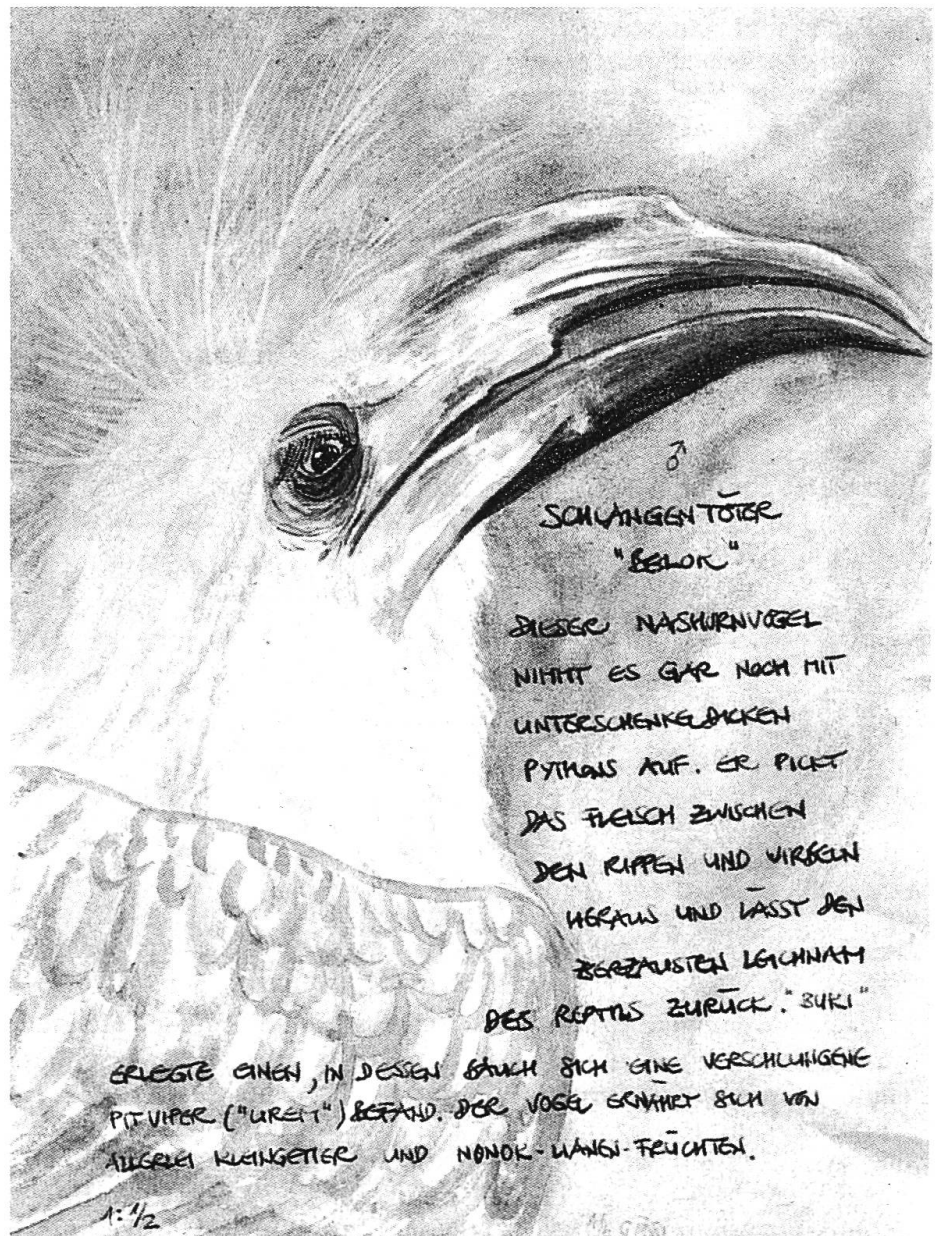 ♂
SCHLANGENTÖTER
"BELOK"
DIESER NASHORNVOGEL
NIMMT ES GAR NOCH MIT
UNTERSCHENKELDICKEN
PYTHONS AUF. ER PICKT
DAS FLEISCH ZWISCHEN
DEN RIPPEN UND WIRBELN
HERAUS UND LÄSST DEN
ZERZAUSTEN LEICHNAM
DES REPTILS ZURÜCK. "BUKI"
ERLEGTE EINEN, IN DESSEN BAUCH SICH EINE VERSCHLUNGENE
PITVIPER ("UREM") BEFAND. DER VOGEL ERNÄHRT SICH VON
ALLERLEI KLEINGETIER UND NONOK-WANGI-FRÜCHTEN.
1:1/2